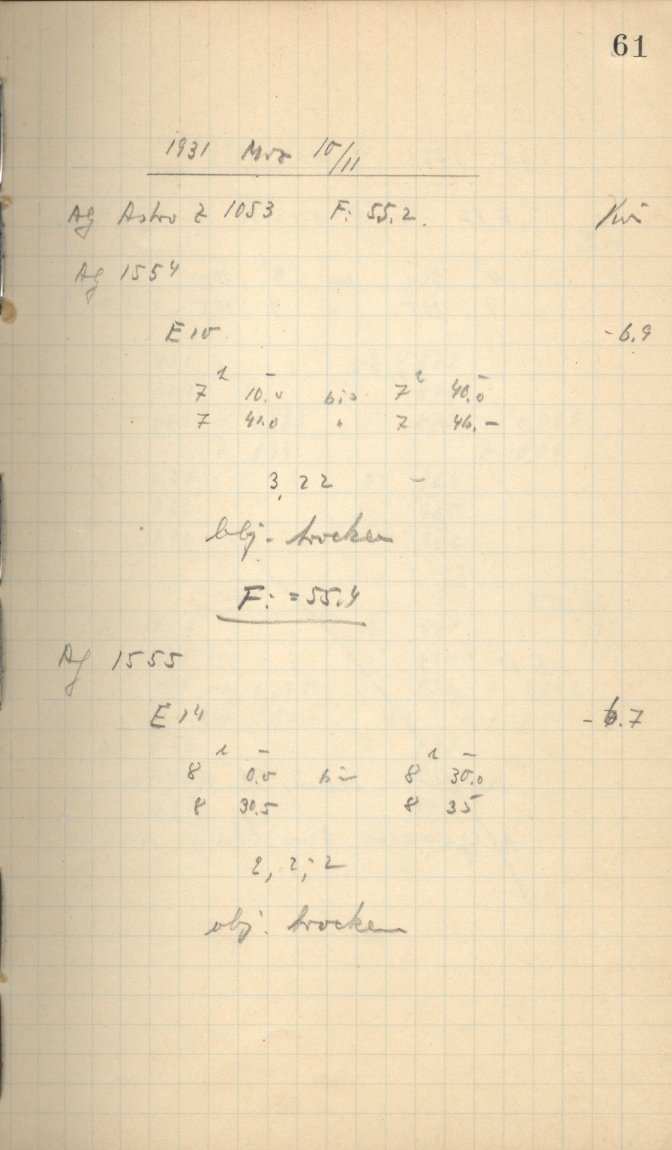 61
1931 Mrz 10/11
Ag Astro Z 1053 F: 55.2.
Ag 1554
E 10 -6.9
7h 10.0 bis 7h 40.0
7 41.0 " 7 46.-
3, 2 2 -
Obj. trocken
F: = 55.4
Ag 1555
E 14 -6.7
8h 0.0 bis 8h 30.0
8 30.5 8 35
2, 2, 2
obj. trocken